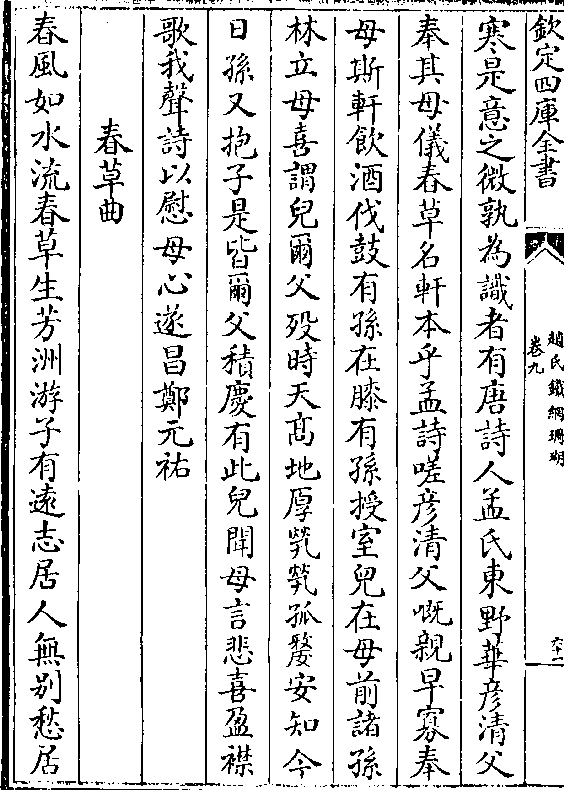 欽定四庫全書
趙氏鐵網珊瑚
卷九
六十一
寒是意之微孰為識者有唐詩人孟氏東野華彦清父
奉其母儀春草名軒本乎孟詩嗟彦清父嘅親早寡奉
母斯軒飲酒伐鼓有孫在膝有孫授室兒在母前諸孫
林立母喜謂兒爾父歿時天髙地厚煢煢孤嫠安知今
日孫又抱子是皆爾父積慶有此兒聞母言悲喜盈襟
歌我聲詩以慰母心遂昌鄭元祐
春草曲
春風如水流春草生芳洲游子有遠志居人無别愁居